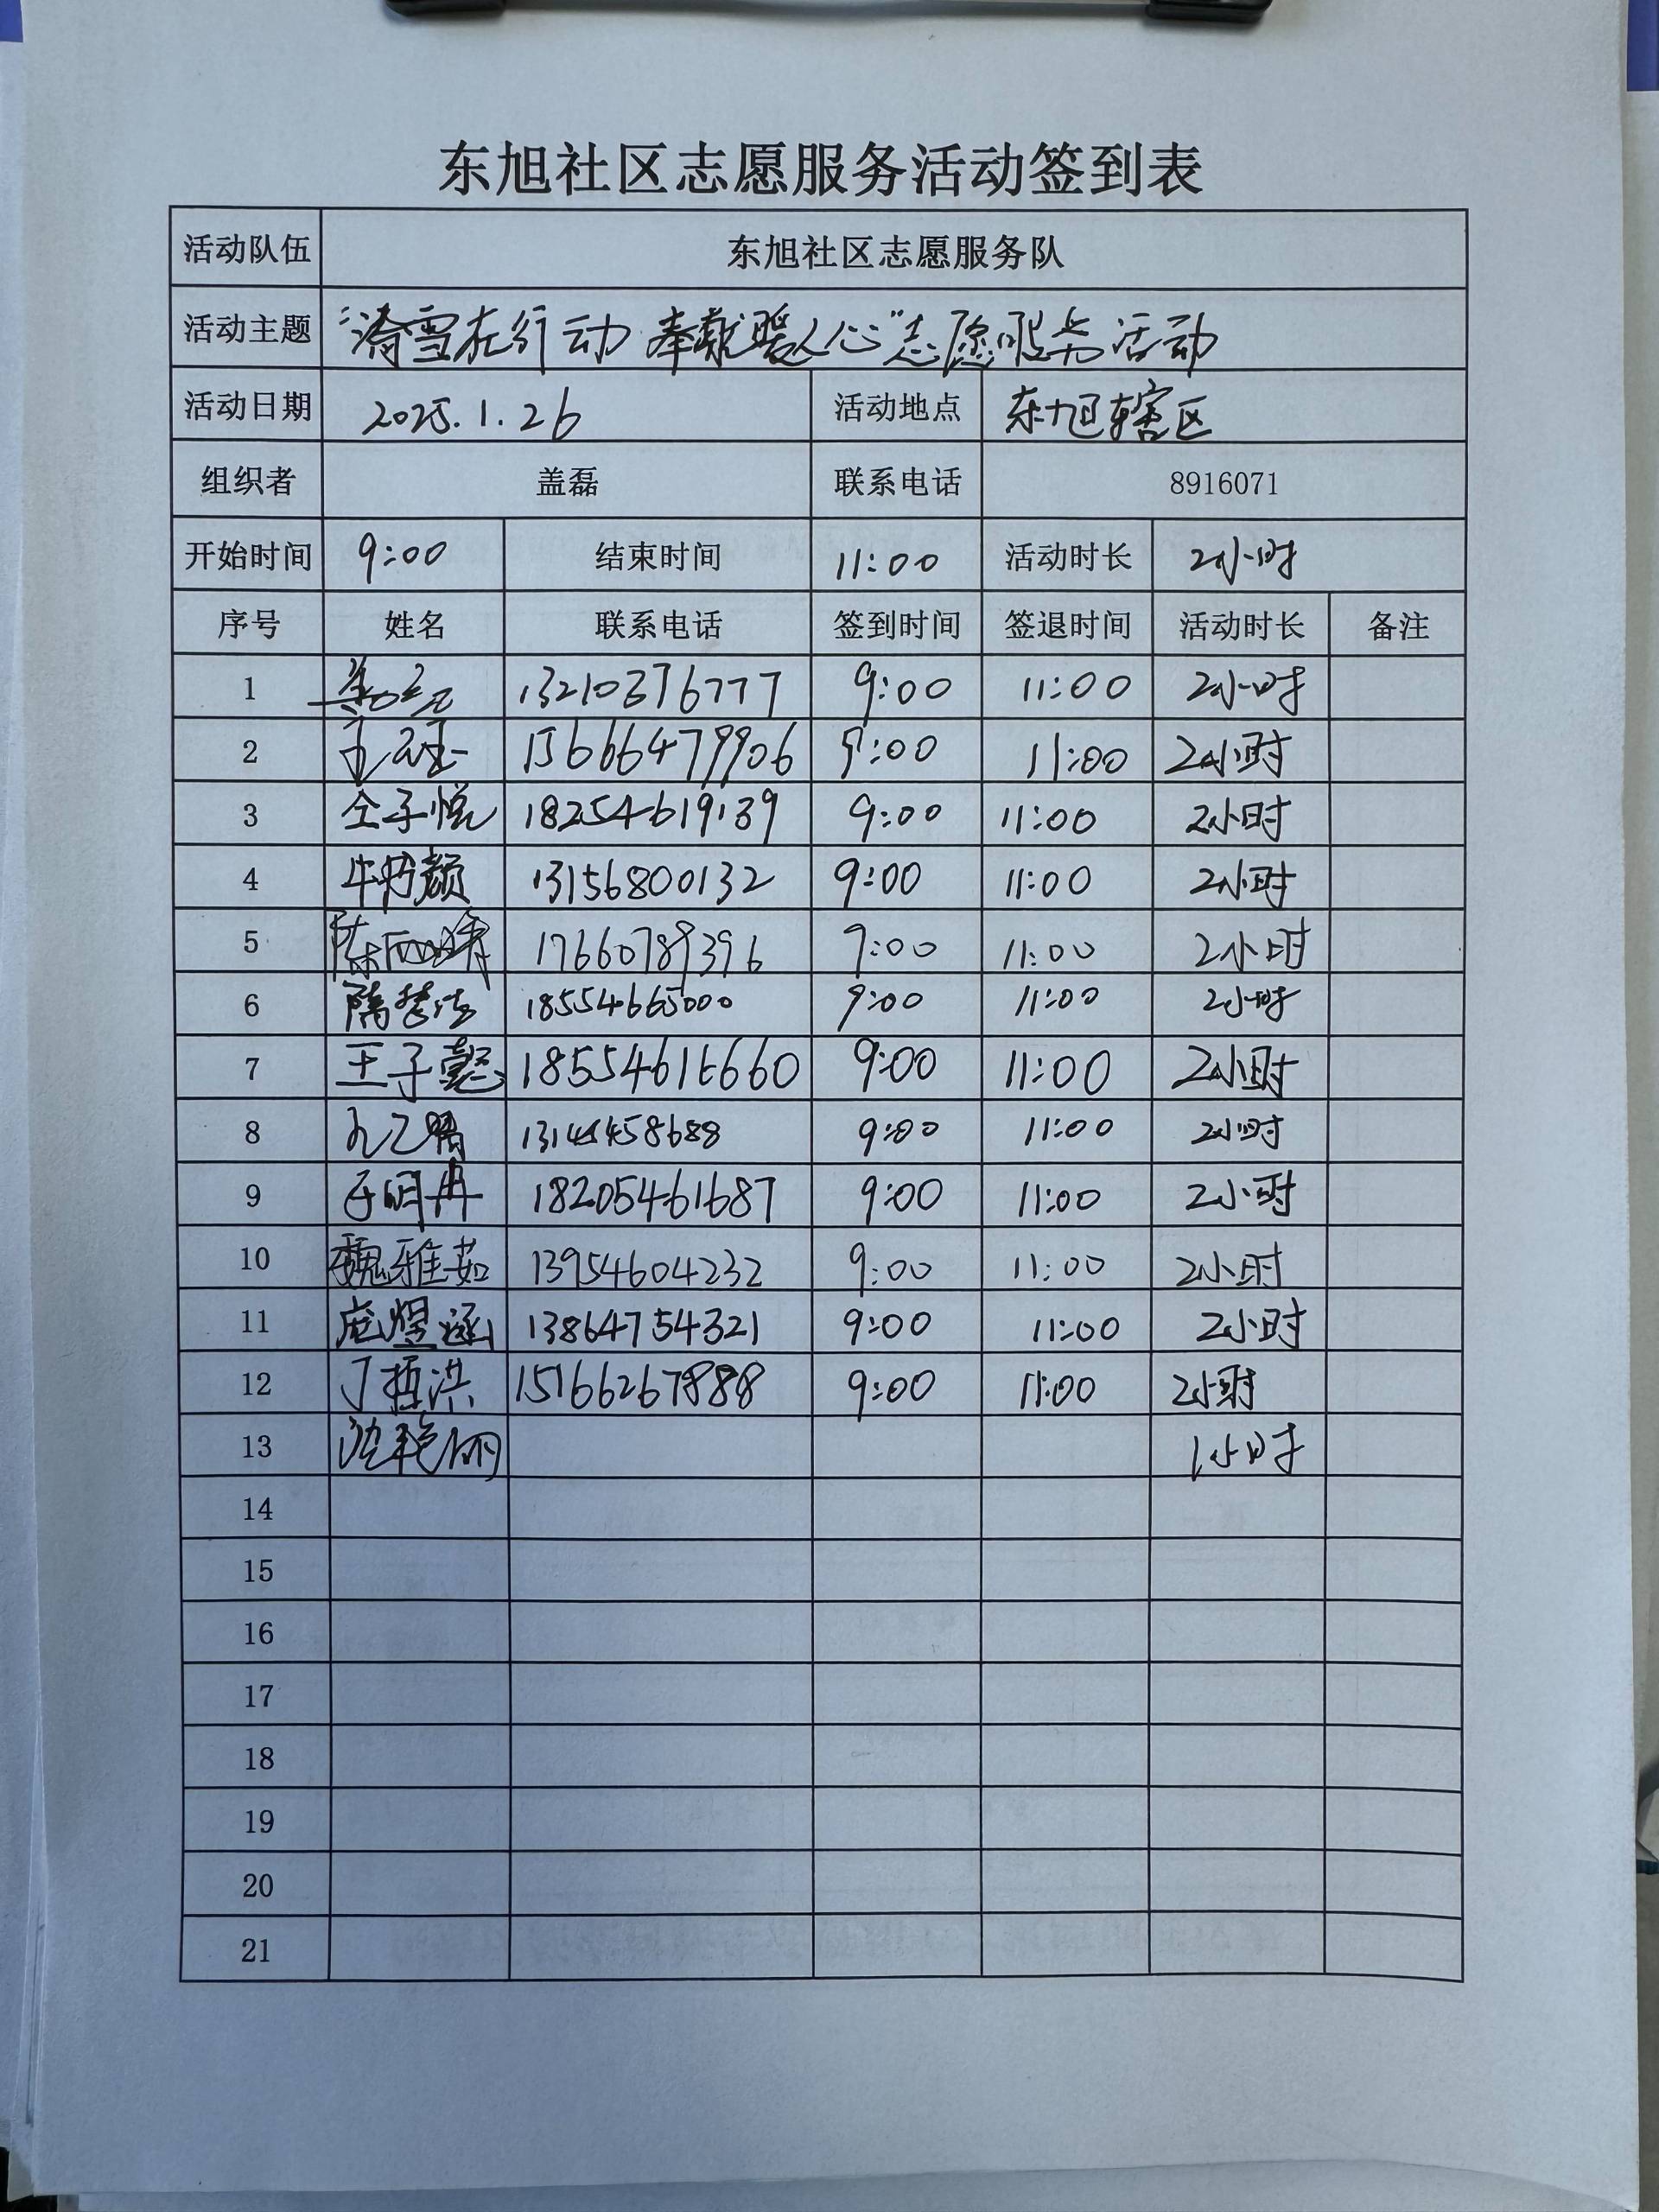 东旭社区志愿服务活动签到表
活动队伍 东旭社区志愿服务队
活动主题 "清雪在行动 奉献暖人心"志愿服务活动
活动日期 2025.1.26 活动地点 东旭辖区
组织者 盖磊 联系电话 8916071
开始时间 9:00 结束时间 11:00 活动时长 2小时
序号 姓名 联系电话 签到时间 签退时间 活动时长 备注
1 13210376777 9:00 11:00 2小时
2 15666479906 9:00 11:00 2小时
3 仝子悦 18254619139 9:00 11:00 2小时
4 13156800132 9:00 11:00 2小时
5 陈雨晴 17660789396 9:00 11:00 2小时
6 18554665000 9:00 11:00 2小时
7 王子懿 9:00 11:00 2小时
8 9:00 11:00 2小时
9 于明冉 18205461687 9:00 11:00 2小时
10 魏雅茹 13954604232 9:00 11:00 2小时
11 庞煜涵 13864754321 9:00 11:00 2小时
12 丁哲洪 15166267888 9:00 11:00 2小时
13 1小时
14
15
16
17
18
19
20
21